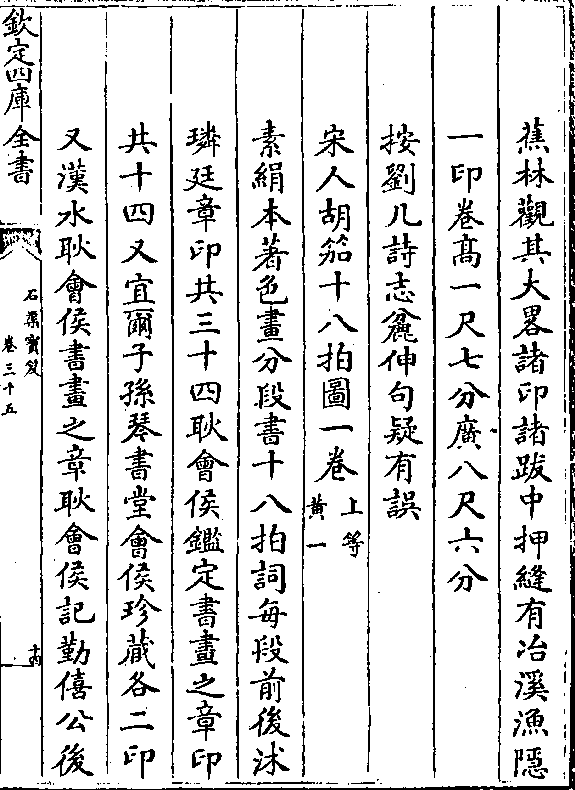 蕉林觀其大畧諸印諸跋中押縫有冶溪漁隱
一印卷髙一尺七分廣八尺六分
按劉几詩志麄伸句疑有誤
宋人胡笳十八拍圖一卷 上等黄一
素絹本著色畫分段書十八拍詞每段前後沭
璘廷章印共三十四耿會侯鑑定書畫之章印
共十四又宜爾子孫琴書堂會侯珍藏各二印
又漢水耿會侯書畫之章耿會侯記勤僖公後
欽定四庫全書
石渠寳笈
卷三十五
十四